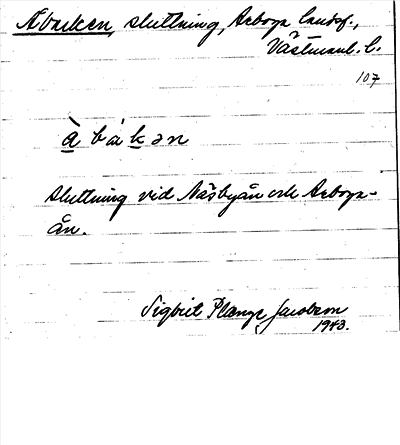 Åbacken, sluttning, Arboga landsf.,
Västmanl. l.
107
å b a k ə n
sluttning vid Näsbyån och Arboga-
ån.
Sigbrit Plænge Jacobson
1943.